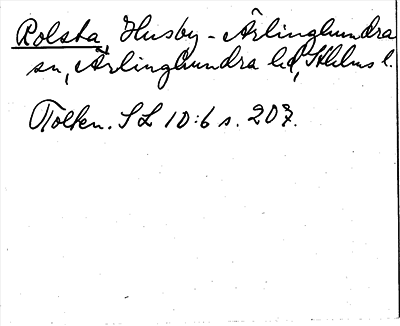 Rolsta, Husby-Ärlinghundra
sn, Ärlinghundra hd, Sthlms l.
Tolken. SL 10:6 s. 207.